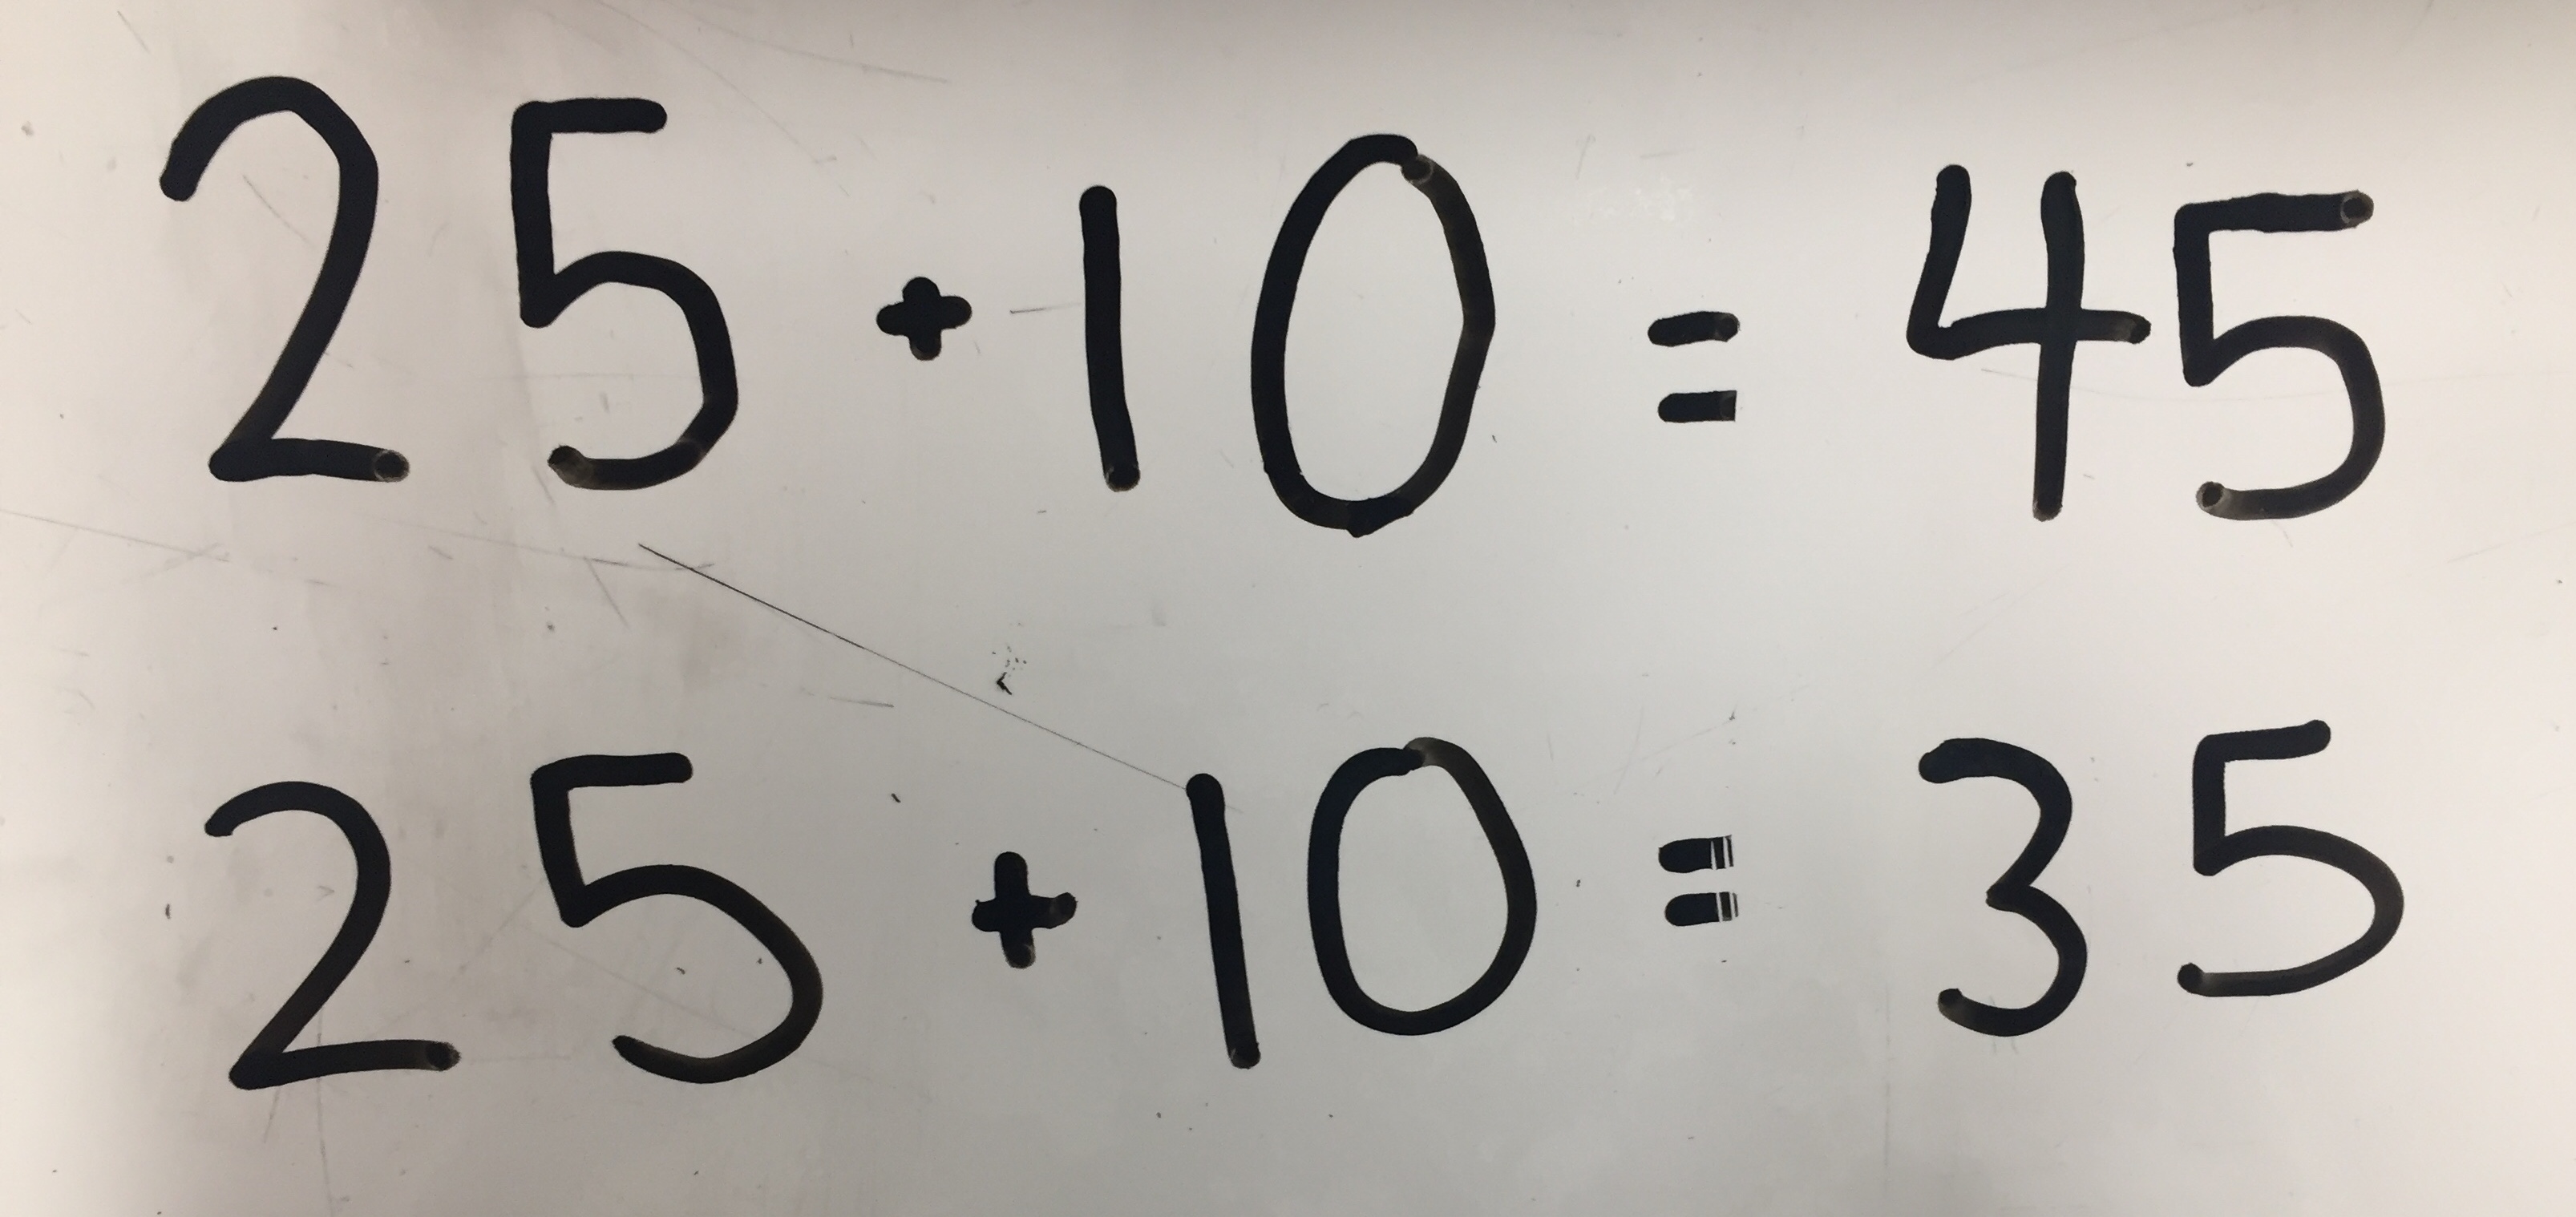 25 + 10 = 45
25 + 10 = 35